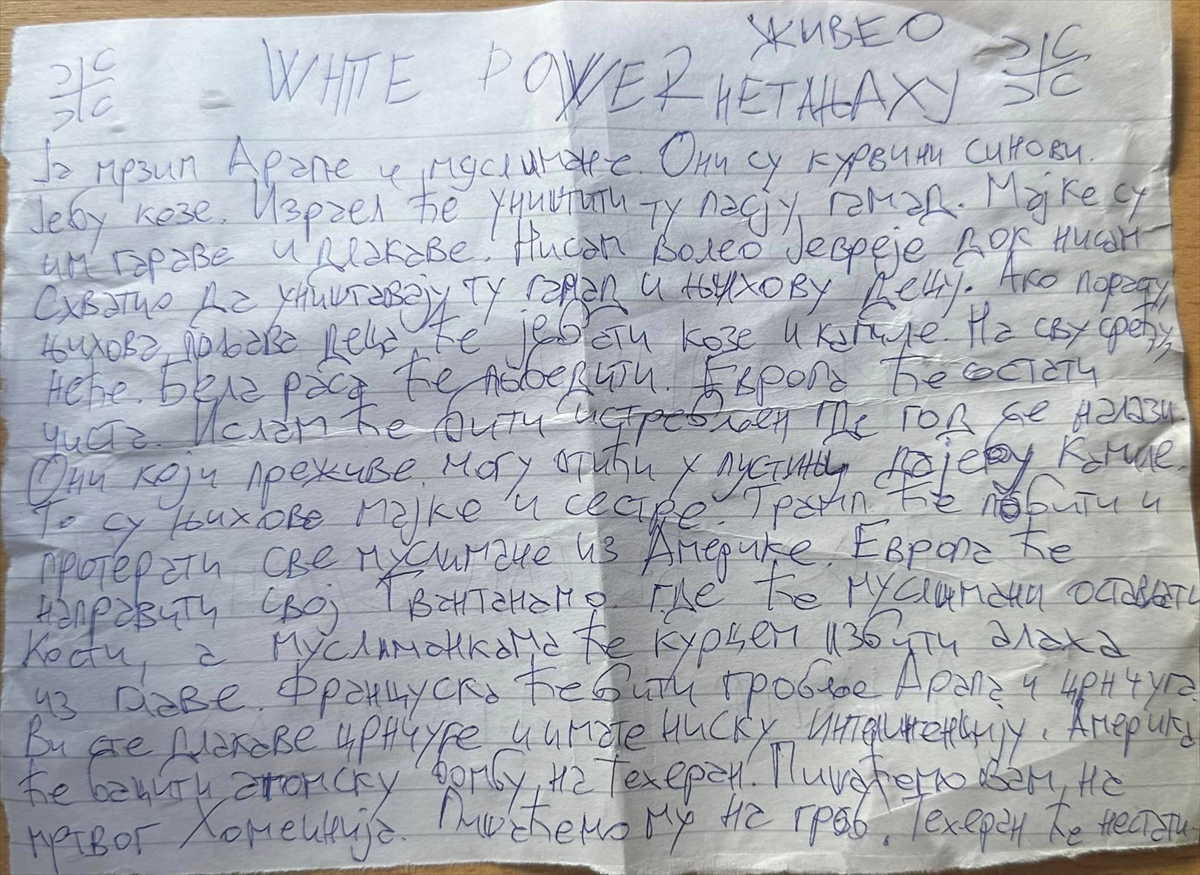 ЖИВЕО
WHITE POWER НЕТАЊАХУ
Ја мрзим Арапе и муслимане. Они су курвини синови.
Јебу козе. Израел ће уништити ту пасју гамад. Мајке су
им гараве и длакаве. Нисам волео Јевреје док нисам
Схватио да уништавају ту гамад и њихову децу. Ако порасту,
њихова прљава деца ће јебати козе и камиле. На сву срећу,
неће. Бела раса ће победити. Европа ће остати
чиста. Ислам ће бити истребљен где год се налази
Они који преживе, могу отићи у пустињу да јебу Камиле.
То су њихове мајке и сестре. Трамп ће побити и
протерати све муслимане из Америке. Европа ће
направити свој Гвантанамо где ће муслимани остављати
Кости, а муслиманкама ће курцем избити алаха
из главе. Француска ће бити гробље Арапа и црнчуга
Ви сте длакаве црнчуге и имате ниску интелигенцију. Америка
ће бацити атомску бомбу на Техеран. Пишаћемо вам на
мртвог Хомеинија. Пишаћемо му на гроб. Техеран ће нестати.